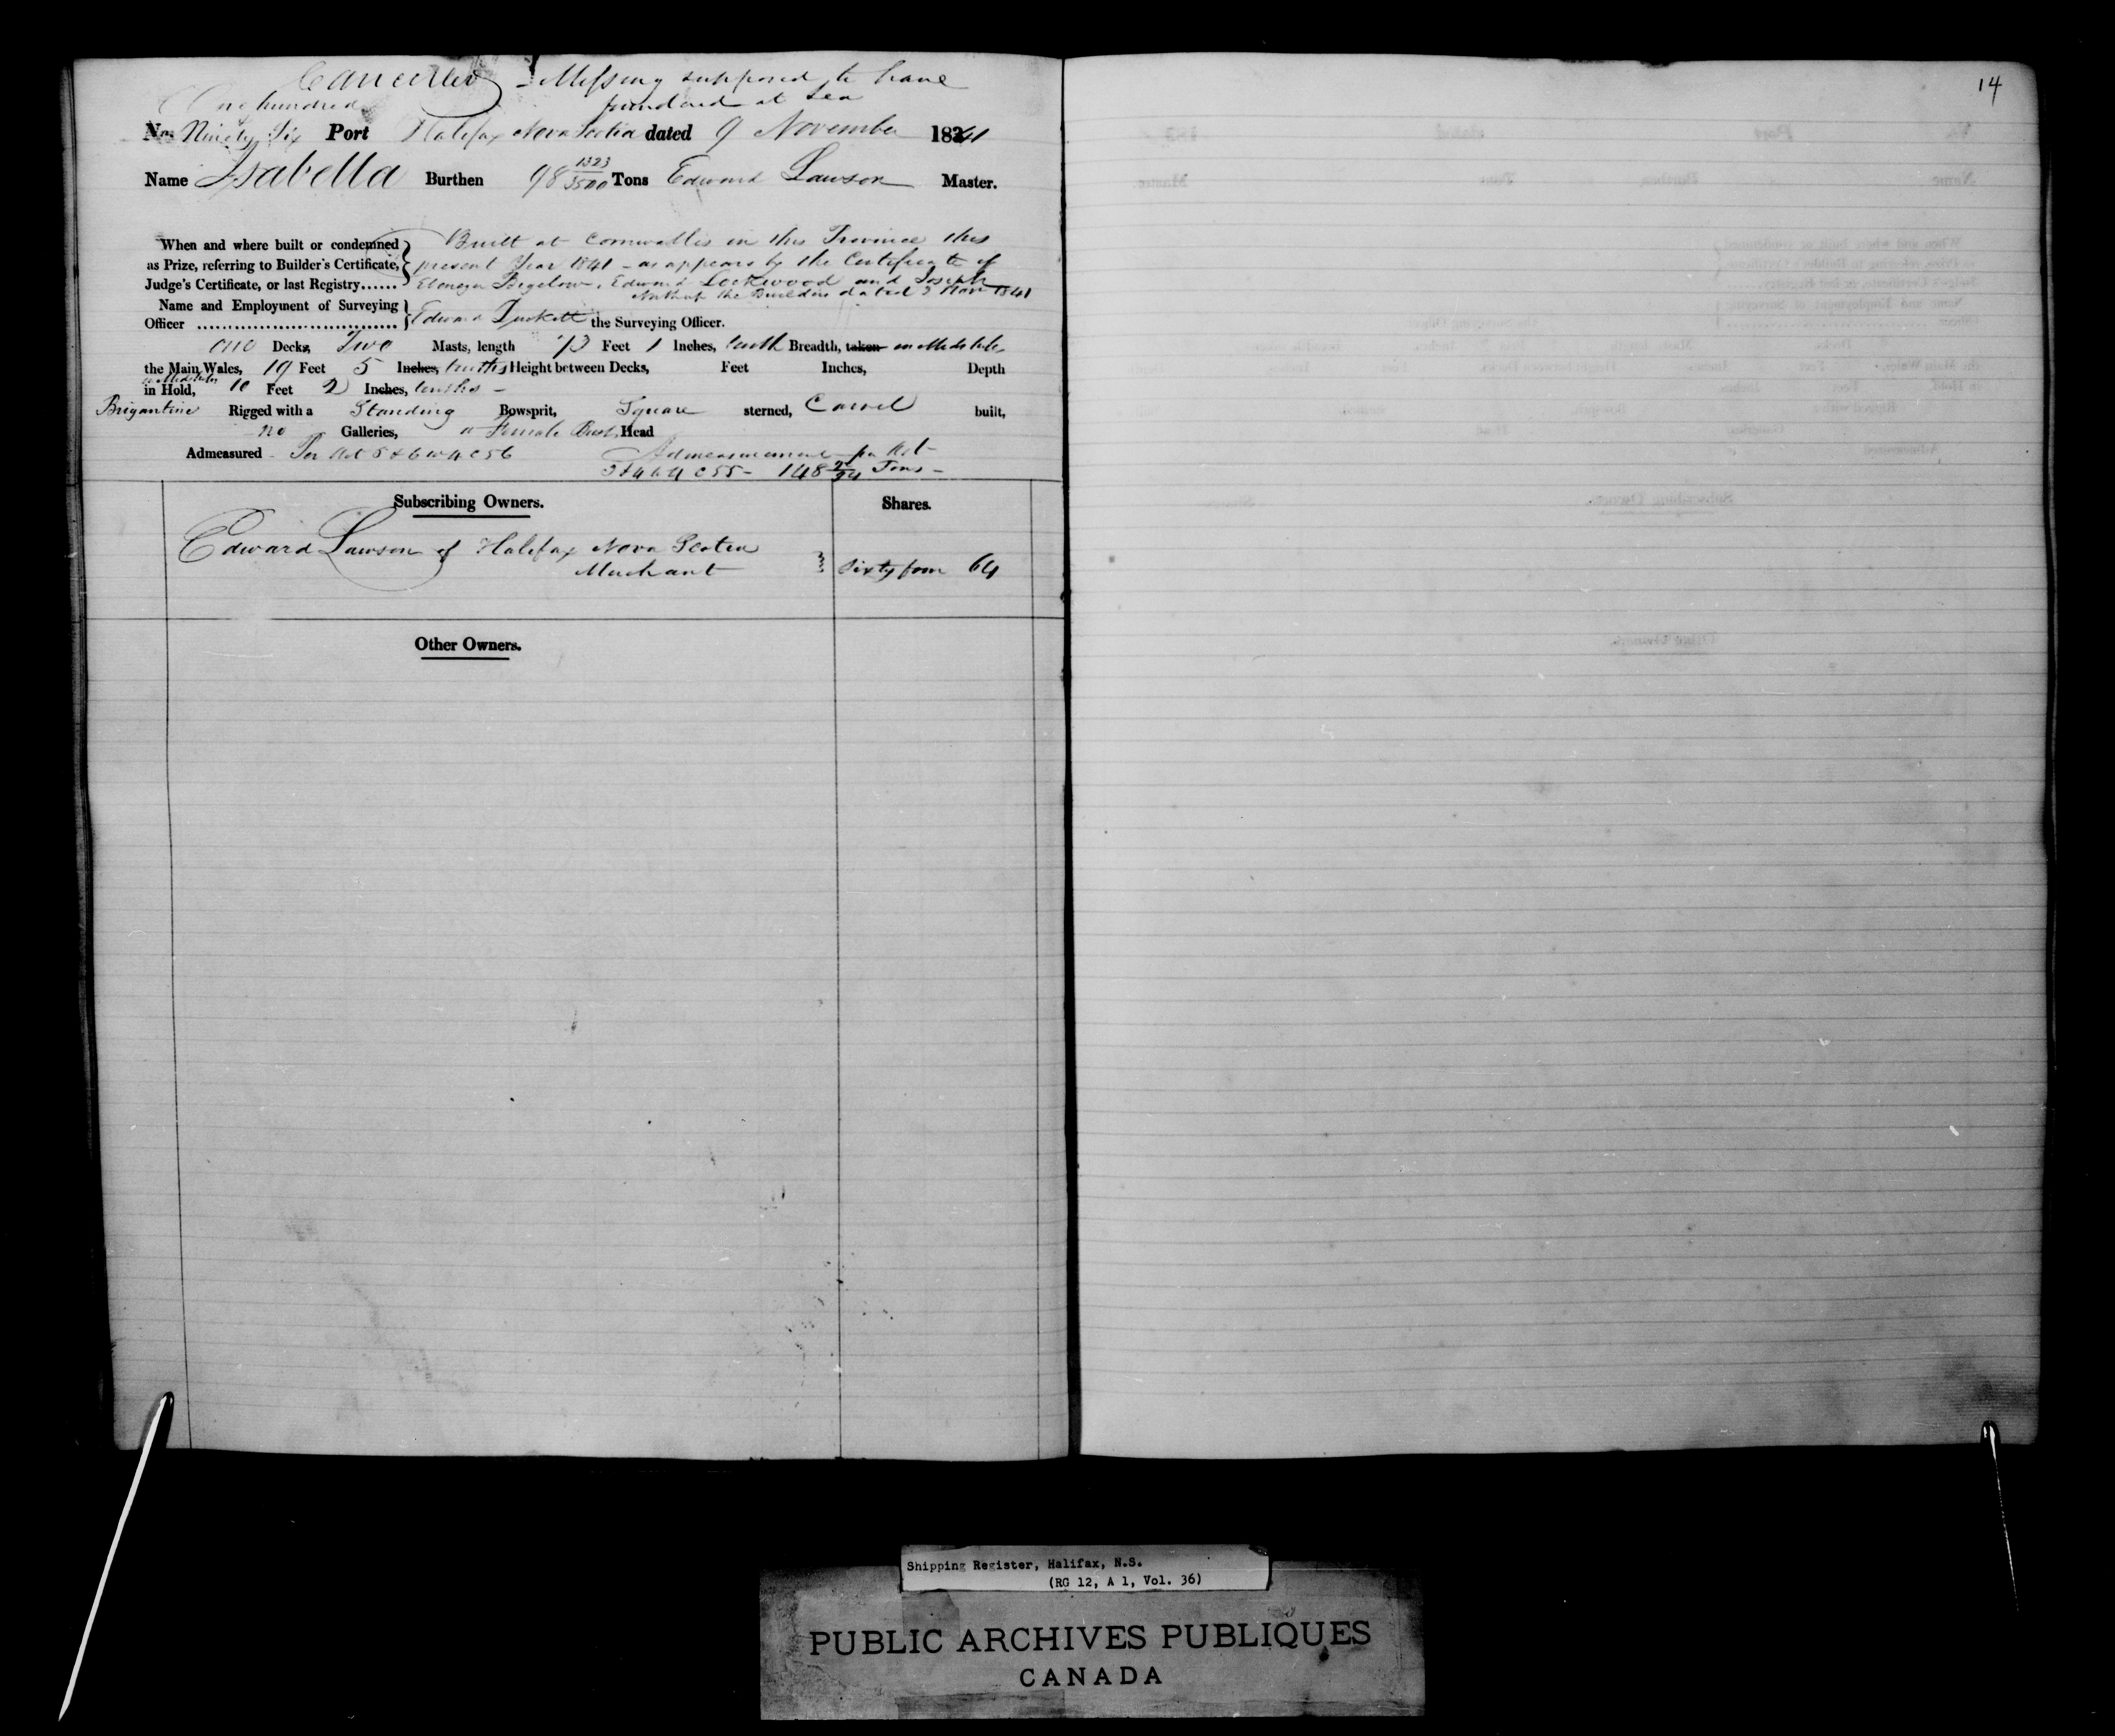 Cancelled - Missing supposed to have
foundered at Sea
One hundred
No. Ninety Six Port Halifax Nova Scotia dated 9 November 1841
Name Isabella Burthen 98 1323/3500 Tons Edward Lawson Master.
When and where built or condemned Built at Cornwallis in this Province this
as Prize, referring to Builder's Certificate, present Year 1841 - as appears by the Certificate of
Judge's Certificate, or last Registry...... Ebenezer Bigelow, Edward Lockwood and Joseph
Northup the Builders dated 3 Nov 1841
Name and Employment of Surveying
Officer Edward Duckett the Surveying Officer.
One Decks, Two Masts, length 73 Feet 1 Inches, tenth Breadth, taken in Midships
the Main Wales, 19 Feet 5 Inches, tenths Height between Decks, Feet Inches, Depth
in Midships
in Hold, 10 Feet 2 Inches, tenths -
Brigantine Rigged with a Standing Bowsprit, Square sterned, Carvel built,
no Galleries, a Female Bust Head
Admeasured - Per Act 5 & 6 W 4 C 56 Admeasurement per Act
3 & 4 W 4 C 55 - 148 Tons -
Subscribing Owners. Shares.
Edward Lawson of Halifax Nova Scotia
Merchant Sixty four 64
Other Owners.
14
Shipping Register, Halifax, N.S.
(RG 12, A 1, Vol. 36)
PUBLIC ARCHIVES PUBLIQUES
CANADA